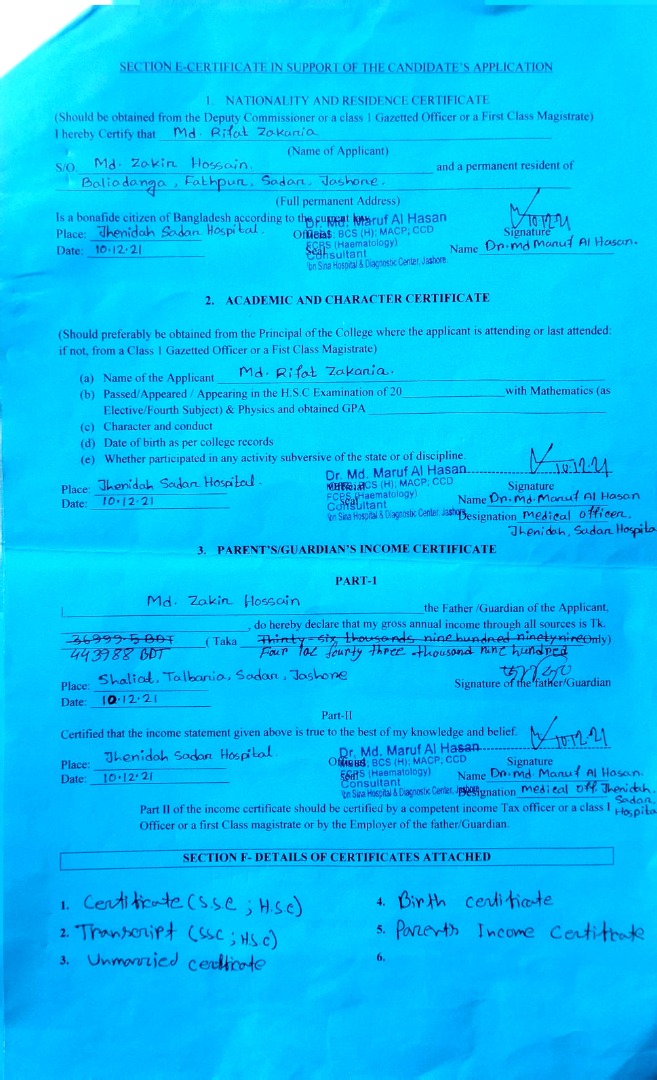 SECTION E-CERTIFICATE IN SUPPORT OF THE CANDIDATE'S APPLICATION
1. NATIONALITY AND RESIDENCE CERTIFICATE
(Should be obtained from the Deputy Commissioner or a class 1 Gazetted Officer or a First Class Magistrate)
I hereby Certify that Md. Rifat Zakaria
(Name of Applicant)
S/O. Md. Zakir Hossain. and a permanent resident of
Baliadanga, Fathpur, Sadar, Jashore.
(Full permanent Address)
Is a bonafide citizen of Bangladesh according to the current law. Dr. Md. Maruf Al Hasan 10.12.21
Place: Jhenidah Sadar Hospital. Official BCS (H); MACP; CCD Signature
Seal FCPS (Haematology)
Date: 10.12.21 Consultant Name Dr. md Maruf Al Hasan.
Ibn Sina Hospital & Diagnostic Center, Jashore.
2. ACADEMIC AND CHARACTER CERTIFICATE
(Should preferably be obtained from the Principal of the College where the applicant is attending or last attended:
if not, from a Class 1 Gazetted Officer or a Fist Class Magistrate)
(a) Name of the Applicant Md. Rifat Zakaria.
(b) Passed/Appeared / Appearing in the H.S.C Examination of 20 with Mathematics (as
Elective/Fourth Subject) & Physics and obtained GPA
(c) Character and conduct
(d) Date of birth as per college records
(e) Whether participated in any activity subversive of the state or of discipline.
Dr. Md. Maruf Al Hasan 10.12.21
Place: Jhenidah Sadar Hospital. BCS (H); MACP; CCD Signature
Seal FCPS (Haematology)
Date: 10.12.21 Consultant Name Dr. Md. Maruf Al Hasan
Ibn Sina Hospital & Diagnostic Center, Jashore. Designation medical officer,
Jhenidah, Sadar Hospita
3. PARENT'S/GUARDIAN'S INCOME CERTIFICATE
PART-1
I Md. Zakir Hossain the Father /Guardian of the Applicant,
, do hereby declare that my gross annual income through all sources is Tk.
36999.5 BDT (Taka Thirty-six thousands nine hundred ninety nine Only)
443988 BDT Four lac fourty three thousand nine hundred
Place: Shaliat, Talbaria, Sadar, Jashore Signature of the father/Guardian
Date: 10.12.21
Part-II
Certified that the income statement given above is true to the best of my knowledge and belief. 10.12.21
Dr. Md. Maruf Al Hasan
Place: Jhenidah Sadar Hospital. Official BCS (H); MACP, CCD Signature
Seal FCPS (Haematology)
Date: 10.12.21 Consultant Name Dr. md Maruf Al Hasan.
Ibn Sina Hospital & Diagnostic Center, Jashore. Designation medical off Jhenidah,
Sadar, Hospita
Part II of the income certificate should be certified by a competent income Tax officer or a class I
Officer or a first Class magistrate or by the Employer of the father/Guardian.
SECTION F- DETAILS OF CERTIFICATES ATTACHED
1. Certificate (SSC ; H.SC) 4. Birth certificate
2. Transcript (SSC ; HSC) 5. Parents Income Certificate
3. Unmarried certificate 6.